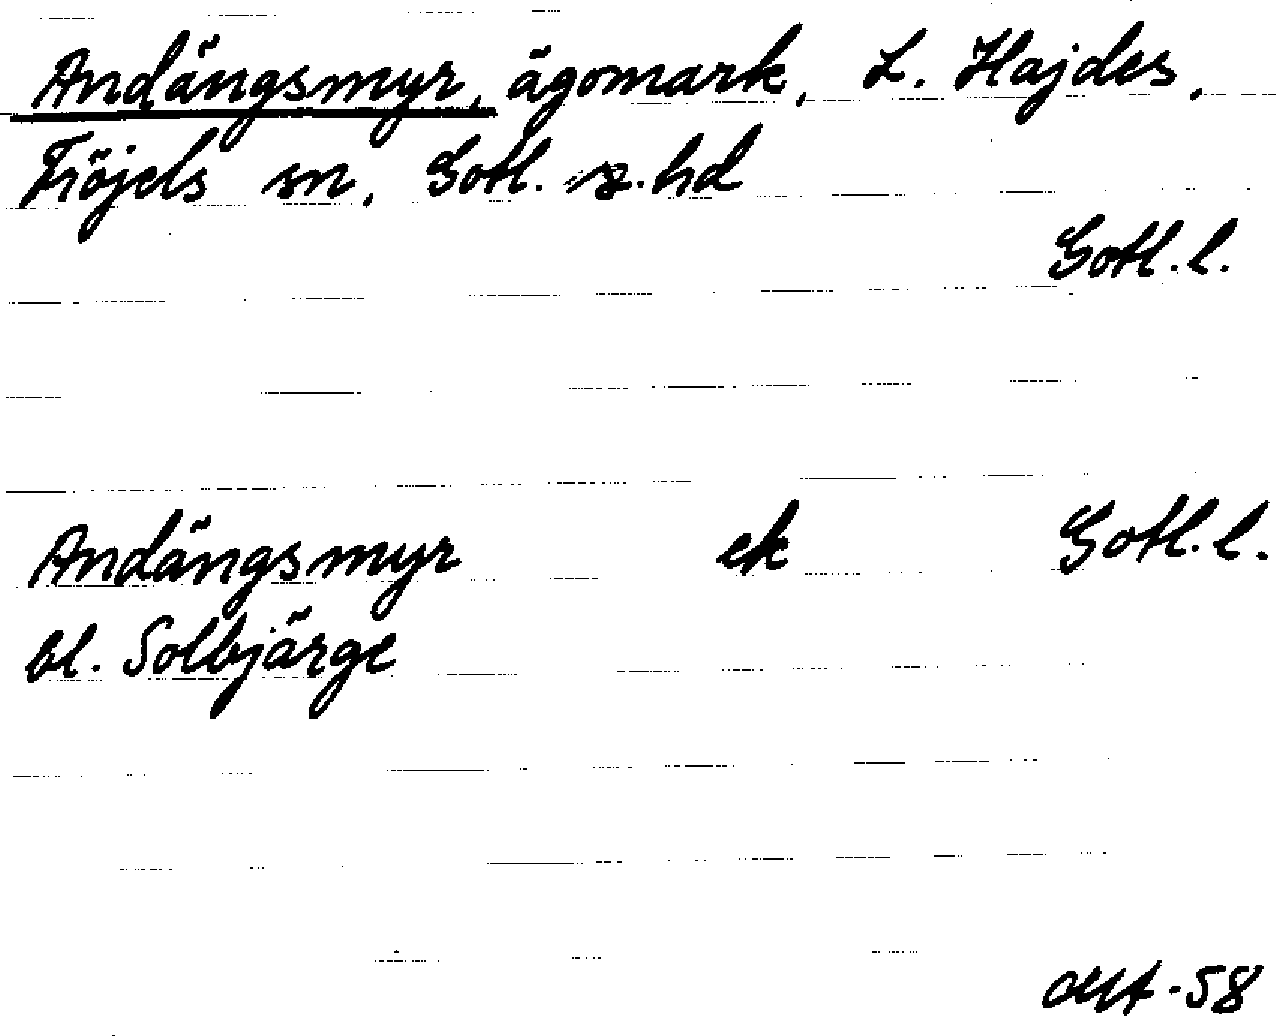 Andängsmyr, ägomark, L. Hajdes,
Fröjels sn, Gotl. s. hd
Gotl. l.
Andängsmyr ek Gotl. l.
bl. Solbjärge
-58